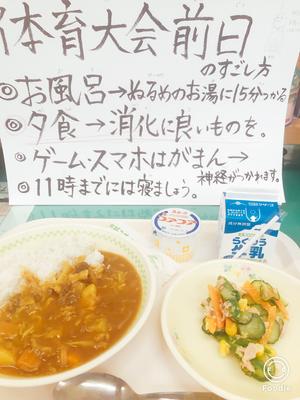 体育大会前日
のすごし方
◎お風呂→ぬるめのお湯に15分つかる
◎夕食→消化に良いものを。
◎ゲーム・スマホはがまん→
神経がつかれます。
◎11時までには寝ましょう。
らくのう
牛乳
Foodie